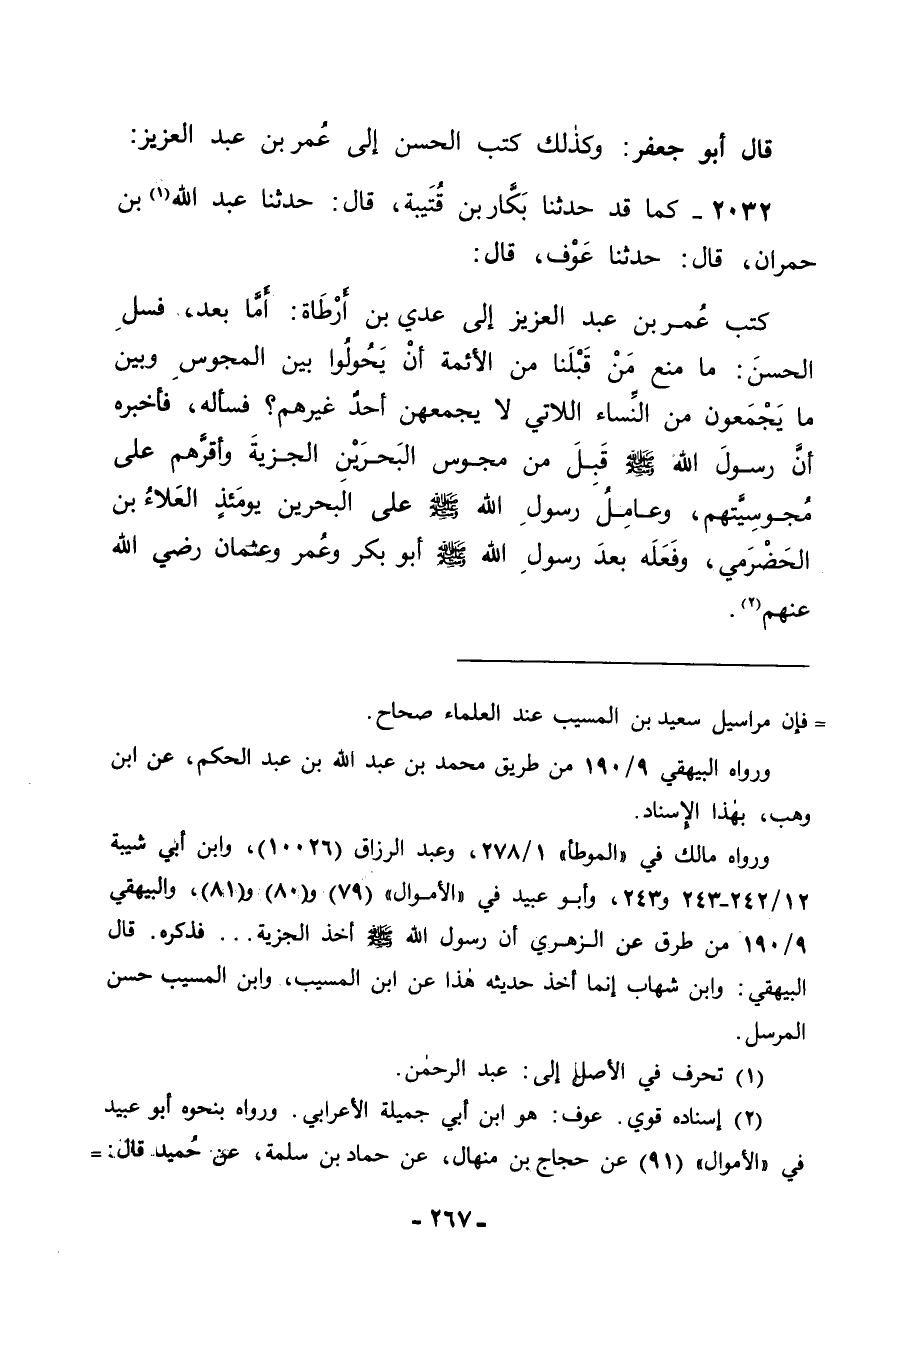 قال أبو جعفر: وكذٰلك كتب الحسن إلى عُمر بن عبد العزيز:
٢٠٣٢ ـ كما قد حدثنا بَكَّار بن قُتَيبة، قال: حدثنا عبد الله(١) بن
حمران، قال: حدثنا عَوْف، قال:
كتب عُمر بن عبد العزيز إلى عدي بن أَرْطَاة: أَمَّا بعد، فسلِ
الحسنَ: ما منع مَنْ قَبْلَنا من الأئمة أنْ يَحُولُوا بين المجوسِ وبين
ما يَجْمَعون من النِّساء اللاتي لا يجمعهن أحدٌ غيرهم؟ فسأله، فأخبره
أنَّ رسولَ الله ﷺ قَبِلَ من مجوس البَحرَيْنِ الجزيةَ وأقرَّهم على
مُجوسِيَّتهم، وعامِلُ رسولِ الله ﷺ على البحرين يومَئذٍ العَلاءُ بن
الحَضْرَمي، وفَعَلَه بعدَ رسولِ الله ﷺ أبو بكر وعُمر وعثمان رضي الله
عنهم(٢).
= فإن مراسيل سعيد بن المسيب عند العلماء صحاح.
ورواه البيهقي ١٩٠/٩ من طريق محمد بن عبد الله بن عبد الحكم، عن ابن
وهب، بهٰذا الإِسناد.
ورواه مالك في «الموطأ» ٢٧٨/١، وعبد الرزاق (١٠٠٢٦)، وابن أبي شيبة
٢٤٢/١٢-٢٤٣ و٢٤٣، وأبو عبيد في «الأموال» (٧٩) و(٨٠) و(٨١)، والبيهقي
١٩٠/٩ من طرق عن الزهري أن رسول الله ﷺ أخذ الجزية... فذكره. قال
البيهقي: وابن شهاب إنما أخذ حديثه هٰذا عن ابن المسيب، وابن المسيب حسن
المرسل.
(١) تحرف في الأصل إلى: عبد الرحمٰن.
(٢) إسناده قوي. عوف: هو ابن أبي جميلة الأعرابي. ورواه بنحوه أبو عبيد
في «الأموال» (٩١) عن حجاج بن منهال، عن حماد بن سلمة، عن حُميد قال: =
ـ ٢٦٧ ـ